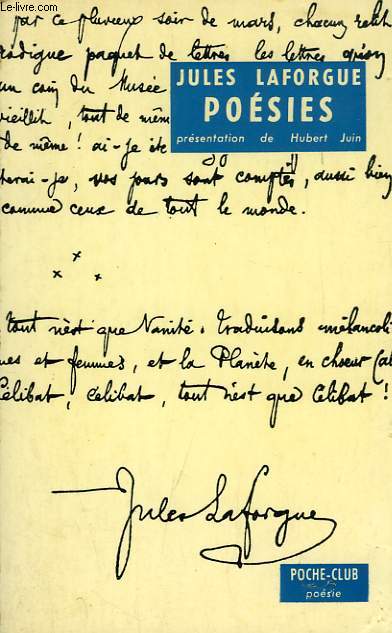 Le-livre.com
par ce pluvieux soir de mars, chacun relit
prodigue paquet de lettres les lettres qu'on
un coin du Musée
vieillit, tout de mêm
de même ! ai-je été
terai-je, nos jours sont comptés, aussi bien
comme ceux de tout le monde.
JULES LAFORGUE
POÉSIES
présentation de Hubert Juin
x x x
tout n'est que Vanité. traduisons mélancoli
mes et femmes, et la Planète, en chœur (al
Célibat, célibat, tout n'est que Célibat !
Jules Laforgue
POCHE-CLUB
poésie